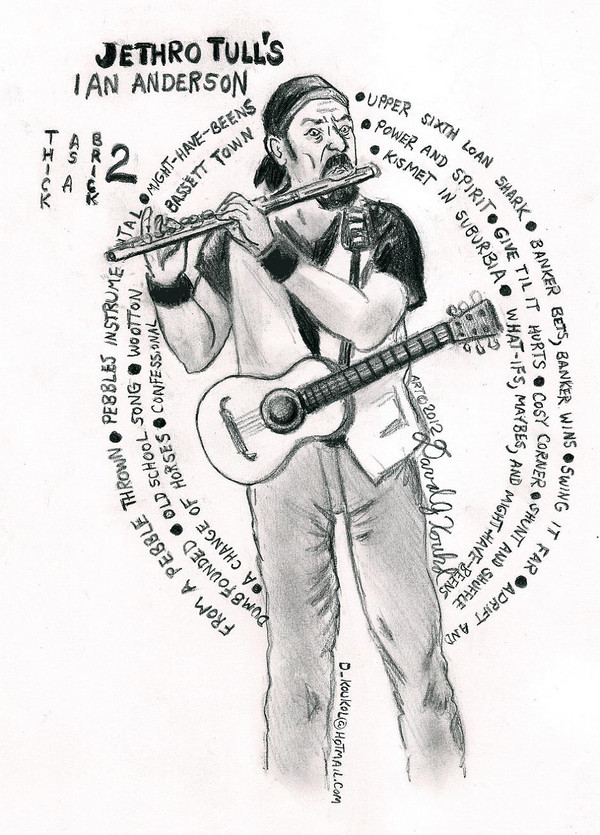 JETHRO TULL'S
IAN ANDERSON
THICK AS A BRICK 2
FROM A PEBBLE THROWN ● PEBBLES INSTRUMENTAL ● MIGHT-HAVE-BEENS
● UPPER SIXTH LOAN SHARK ● BANKER BETS, BANKER WINS ● SWING IT FAR ● ADRIFT AND
DUMBFOUNDED ● OLD SCHOOL SONG ● WOOTTON
BASSETT TOWN
● POWER AND SPIRIT ● GIVE TIL IT HURTS ● COSY CORNER ● SHUNT AND SHUFFLE
● A CHANGE OF HORSES ● CONFESSIONAL
● KISMET IN SUBURBIA ● WHAT-IFS, MAYBES, AND MIGHT-HAVE-BEENS
ART © 2012
D_KOUKOL@HOTMAIL.COM